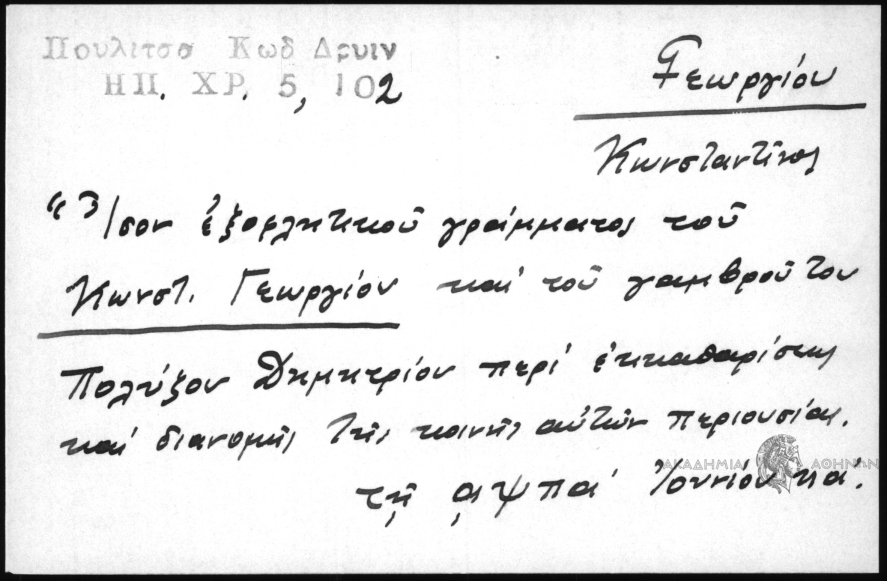 Πουλιτσα Κωδ Δρυιν
ΗΠ. ΧΡ. 5, 102
Γεωργίου
Κωνσταντῖνος
"Ἴσον ἐξοφλητικοῦ γράμματος τοῦ
Κωνστ. Γεωργίου καὶ τοῦ γαμβροῦ του
Πολύζου Δημητρίου περί ἐκκαθαρίσεως
καί διανομῆς τῆς κοινῆς αὐτῶν περιουσίας.
τῇ ͵αψπα' Ἰουνίου κα'.
ΑΚΑΔΗΜΙΑ ΑΘΗΝΩΝ